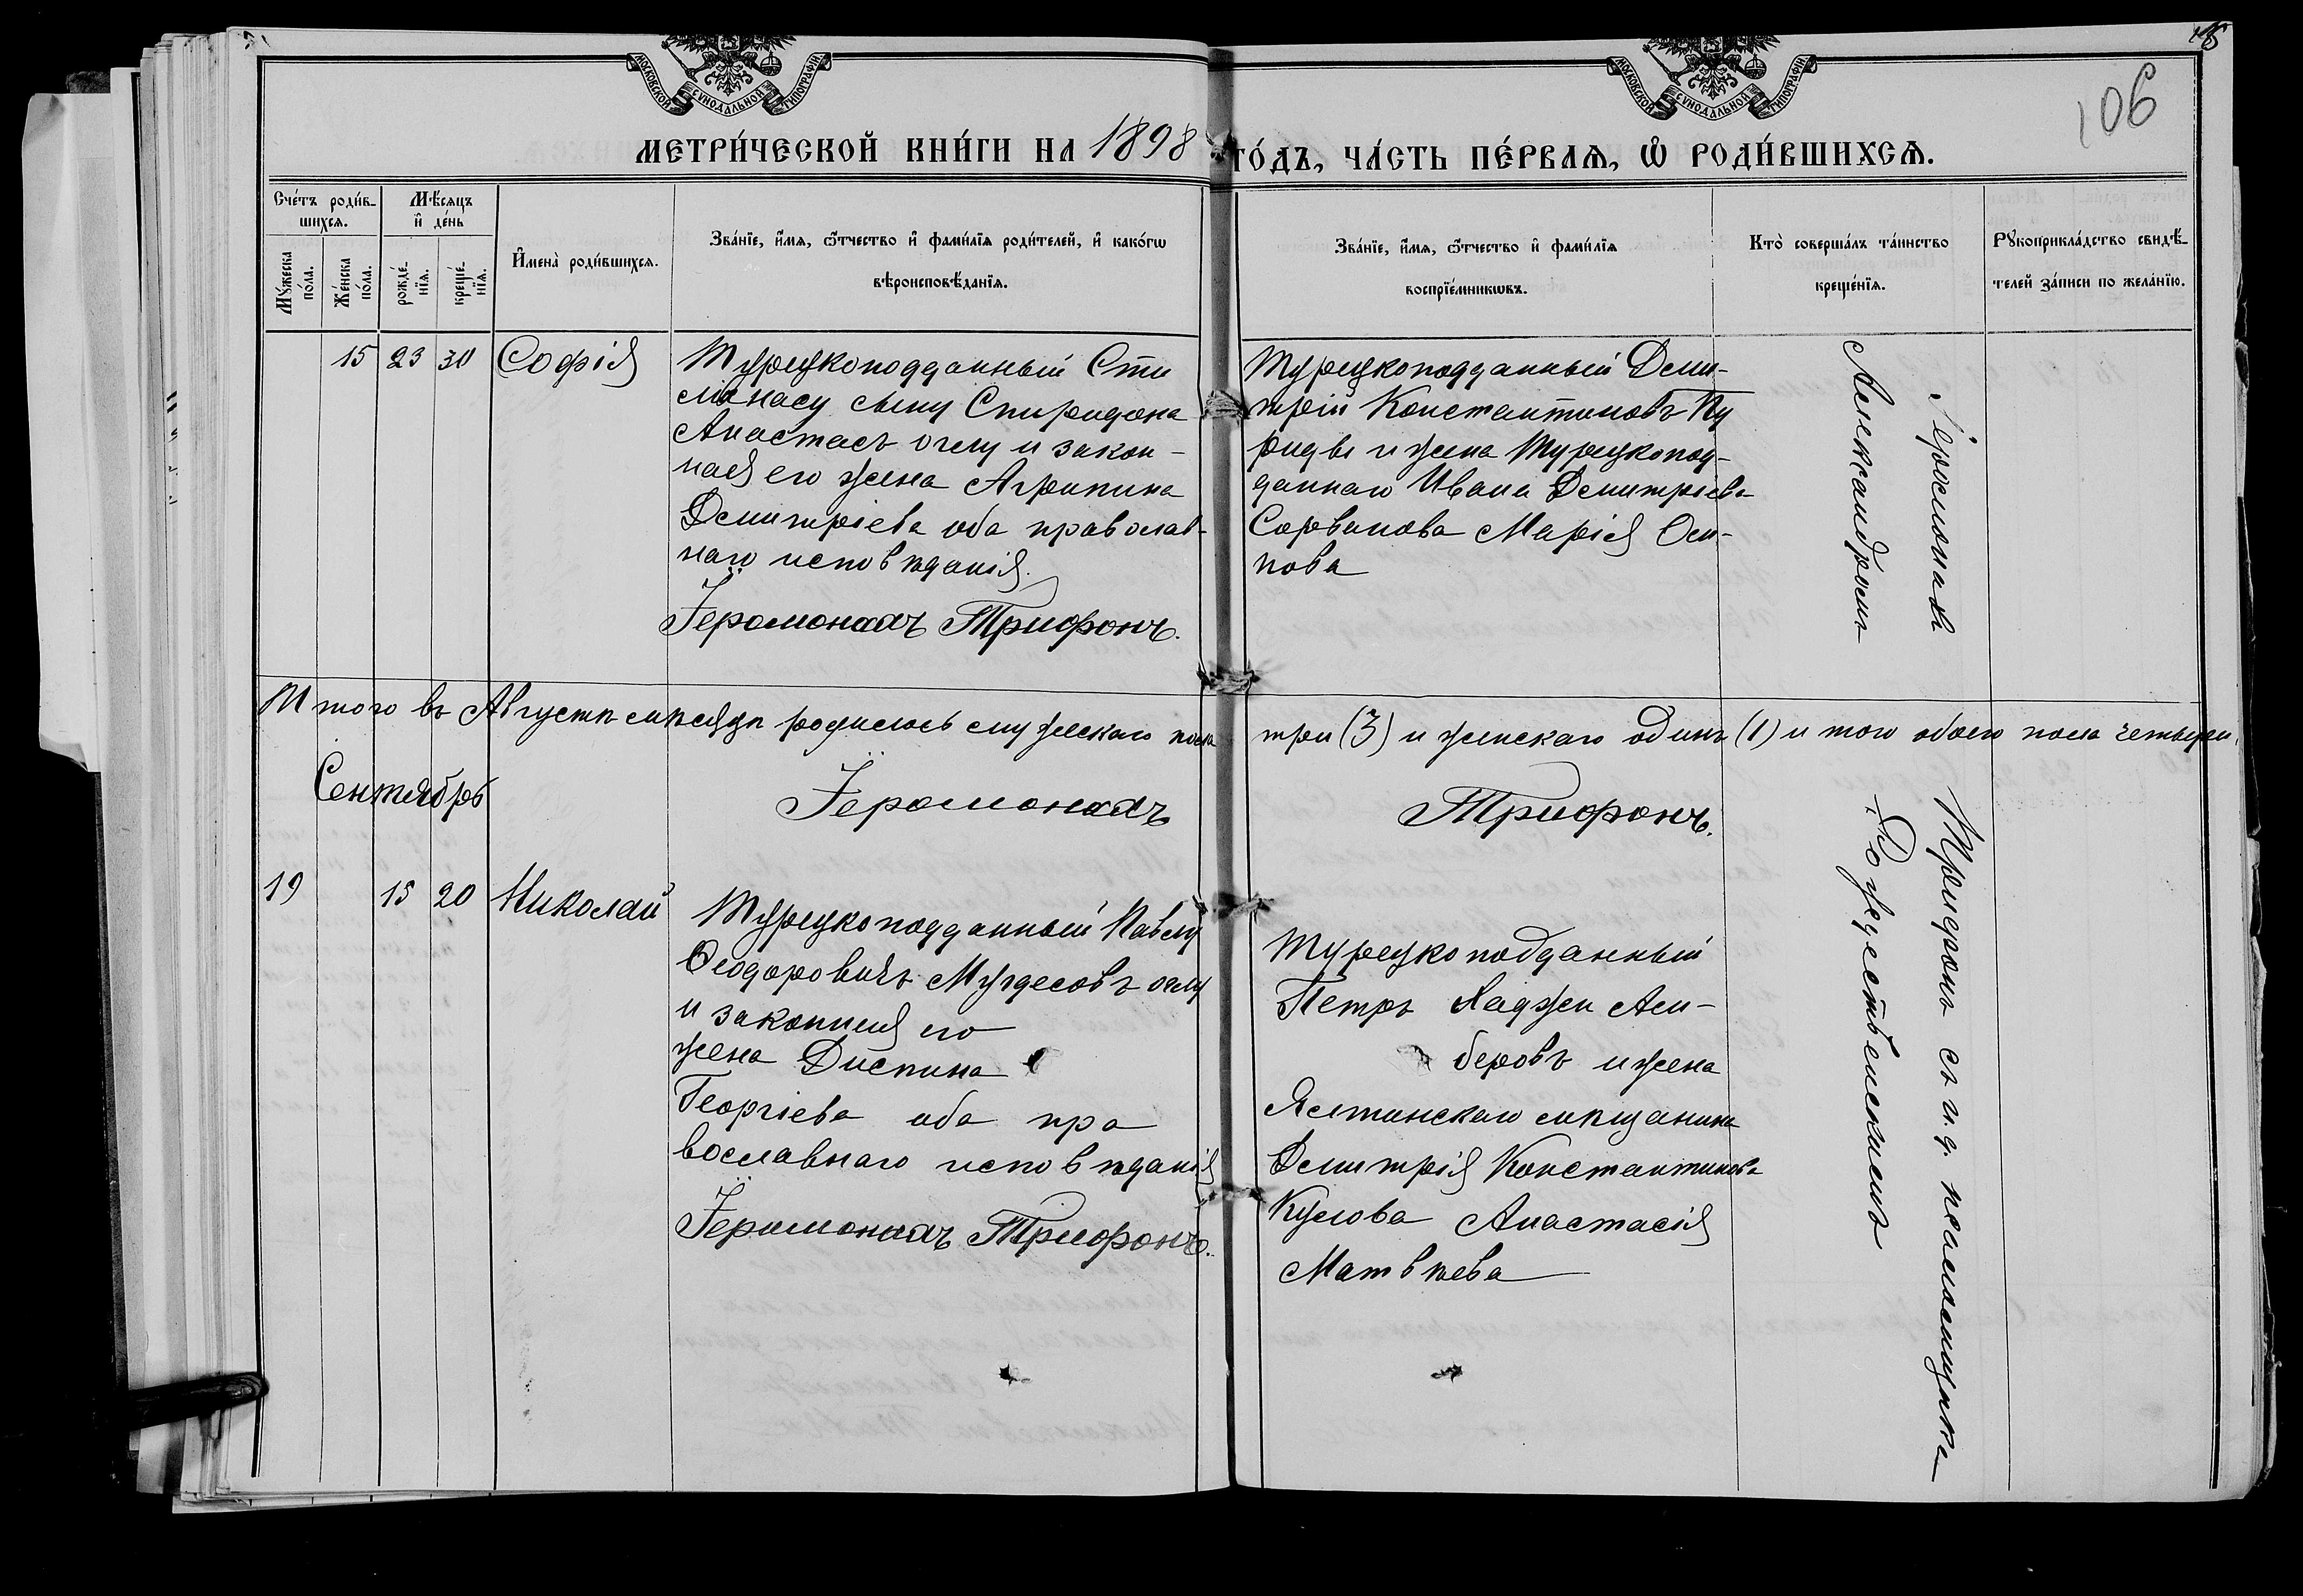 МОСКОВСКОЙ СѴНОДАЛЬНОЙ ТИПОГРАФІИ
МОСКОВСКОЙ СѴНОДАЛЬНОЙ ТИПОГРАФІИ
106
МЕТРИ́ЧЕСКОЙ КНИ́ГИ НА 1898 ГО́ДЪ, ЧА́СТЬ ПЕ́РВАѦ, Ѡ҆ РОДИ́ВШИХСѦ.
Сче́тъ роди́в-
шихсѧ.
Мѣ́сѧцъ
и҆ де́нь
Мꙋ́жеска
по́ла.
Же́нска
по́ла.
рожде́-
нїѧ.
креще́-
нїѧ.
И҆мена̀ роди́вшихсѧ.
Зва́нїе, и҆́мѧ, ѻ҆́тчество и҆ фами́лїѧ роди́телей, и҆ како́гѡ
вѣроисповѣ́данїѧ.
Зва́нїе, и҆́мѧ, ѻ҆́тчество и҆ фами́лїѧ
воспрїе́мникѡвъ.
Кто̀ соверша́лъ та́инство
креще́нїѧ.
Рꙋкоприкла́дство свидѣ́-
телей за́писи по жела́нїю.
15 23 30 Софія
Турецкоподданный Сти
лианасу сыну Спиридона
Анастасъ оглу и закон-
ная его жена Агрипина
Димитріева оба православ-
наго исповѣданія.
Іеромонахъ Трифонъ.
Турецкоподданный Дми-
трій Константиновъ Пу
риды и жена Турецкопод-
даннаго Ивана Дмитріева
Сорванова Марія Оси-
пова
Іеромонах
Александромъ
Итого въ Августѣ мѣсяцѣ родилось мужескаго пола три (3) и женскаго одинъ (1) и того обоего пола четыре.
Сентябрь
Іеромонахъ Трифонъ.
19 15 20 Николай
Турецкоподданный Павелъ
Ѳеодоровичъ Мурдесовъ оглу
и законная его
жена Диспина
Георгіева оба пра
вославнаго исповѣданія
Іеромонахъ Трифонъ.
Турецкоподданный
Петръ Хаджи Али-
беровъ и жена
Ялтинскаго мѣщанина
Димитрія Константинова
Кулова Анастасія
Матвѣева
Трифонъ съ и. д. псаломщика
Рождественскимъ